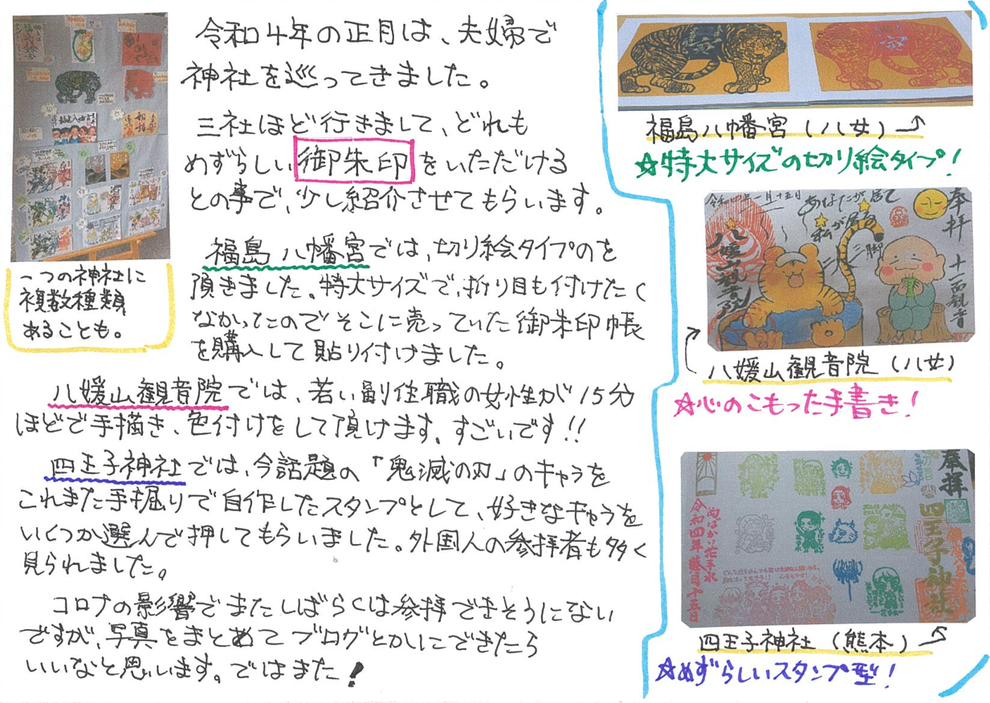 令和4年の正月は、夫婦で
神社を巡ってきました。
三社ほど行きまして、どれも
めずらしい御朱印をいただける
との事で、少し紹介させてもらいます。
福島八幡宮では、切り絵タイプのを
頂きました。特大サイズで、折り目も付けたく
なかったのでそこに売っていた御朱印帳
を購入して貼り付けました。
八媛山観音院では、若い副住職の女性が15分
ほどで手描き、色付けをして頂けます。すごいです!!
四王子神社では、今話題の「鬼滅の刃」のキャラを
これまた手掘りで自作したスタンプとして、好きなキャラを
いくつか選んで押してもらいました。外国人の参拝者も多く
見られました。
コロナの影響でまたしばらくは参拝できそうにない
ですが、写真をまとめてブログとかにできたら
いいなと思います。ではまた!
一つの神社に
複数種類
あることも。
福島八幡宮(八女)
☆特大サイズの切り絵タイプ!
令和四年一月十五日
あなたが居て
私が居る
奉拝
十一面観音
八媛山観音院(八女)
☆心のこもった手書き!
奉拝
四王子神社
令和四年
四王子神社(熊本)
☆めずらしいスタンプ型!